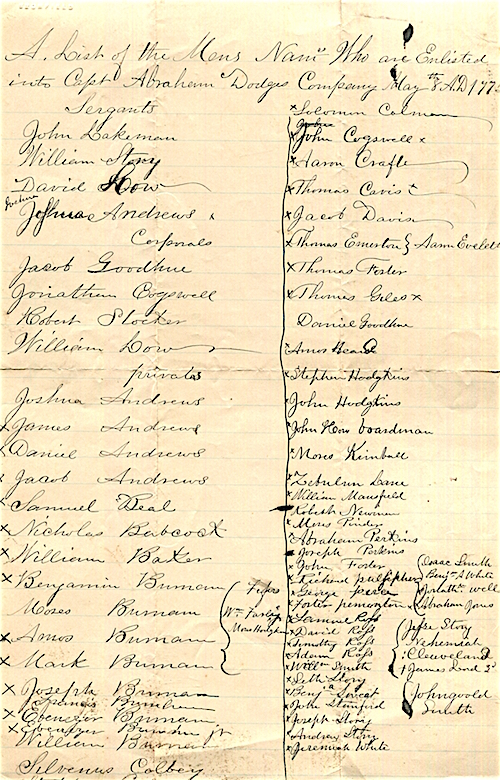 A. List of the Mens Nam^s Who are Enlisted
into Capt Abraham Dodges Company May th 8 AD 177
Sergants
John Lakeman
William Story
David How
Joshua Andrews x
Corporals
Jacob Goodhue
Jonathan Cogswell
Robert Stocker
William Low
privates
Joshua Andrews
x James Andrews
x Daniel Andrews
x Jacob Andrews
x Samuel Beal
x Nicholas Babcock
x William Baker
x Benjamin Burnam
Moses Burnam
x Amos Burnam
x Mark Burnam
x Joseph Burnam
x Francis Burnam
x Ebenezer Burnam
x Ebenezer Burnam jr
William Burnam
Silvenus Colbey
x Solomon Colman
x John Cogswell x
x Aaron Crafts
x Thomas Cavis
x Jacob Davis
x Thomas Emerton } Aaron Eveleth
x Thomas Foster
x Thomas Giles x
Daniel Goodhue
x Amos Heard
x Stephen Hodgkins
x John Hodgkins
x John How boardman
x Moses Kimball
x Zebulun Lane
x William Mansfield
Robert Newman
x Moses Pinder
x Abraham Perkins
Joseph Perkins
x John Foster
x Richard
x George
x Foster
x Samuel Ross
x David Ross
x Timothy Ross
x Adam Ross
x Will^m Smith
x Seth Story
x Benj^a Sweat
x John Stanford
x Joseph Story
x Andrew Story
x Jeremiah White
Isaac Smith
Benj^a White
Jonath^n well
Abraham Jones
Jesse Story
Nehemiah
Cleaveland
James Lord 3^d
John
Smith